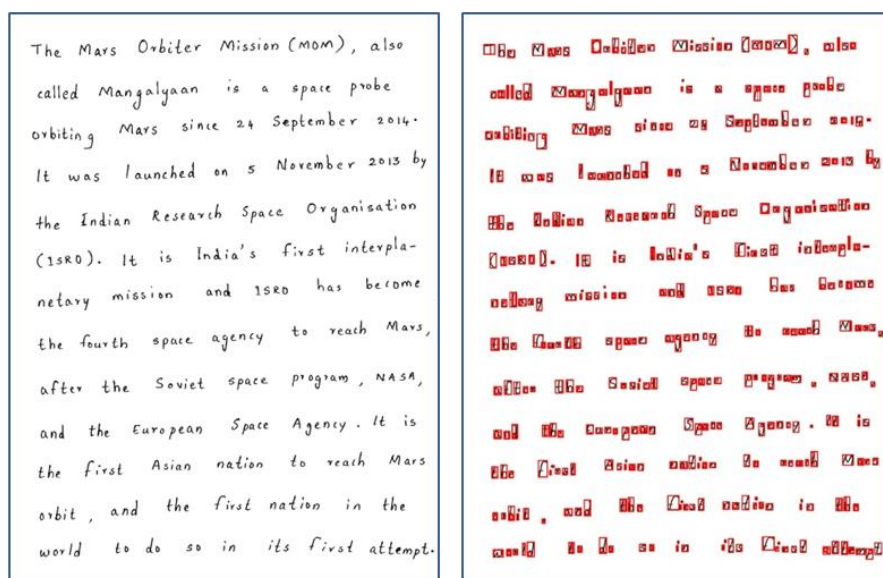 The Mars Orbiter Mission (MOM), also
called Mangalyaan is a space probe
orbiting Mars since 24 September 2014.
It was launched on 5 November 2013 by
the Indian Research Space Organisation
(ISRO). It is India's first interpla-
netary mission and ISRO has become
the fourth space agency to reach Mars,
after the Soviet space program, NASA,
and the European Space Agency. It is
the first Asian nation to reach Mars
orbit, and the first nation in the
world to do so in its first attempt.
The Mars Orbiter Mission (MOM), also
called Mangalyaan is a space probe
orbiting Mars since 24 September 2014.
It was launched on 5 November 2013 by
the Indian Research Space Organisation
(ISRO). It is India's first interpla-
netary mission and ISRO has become
the fourth space agency to reach Mars,
after the Soviet space program, NASA,
and the European Space Agency. It is
the first Asian nation to reach Mars
orbit, and the first nation in the
world to do so in its first attempt